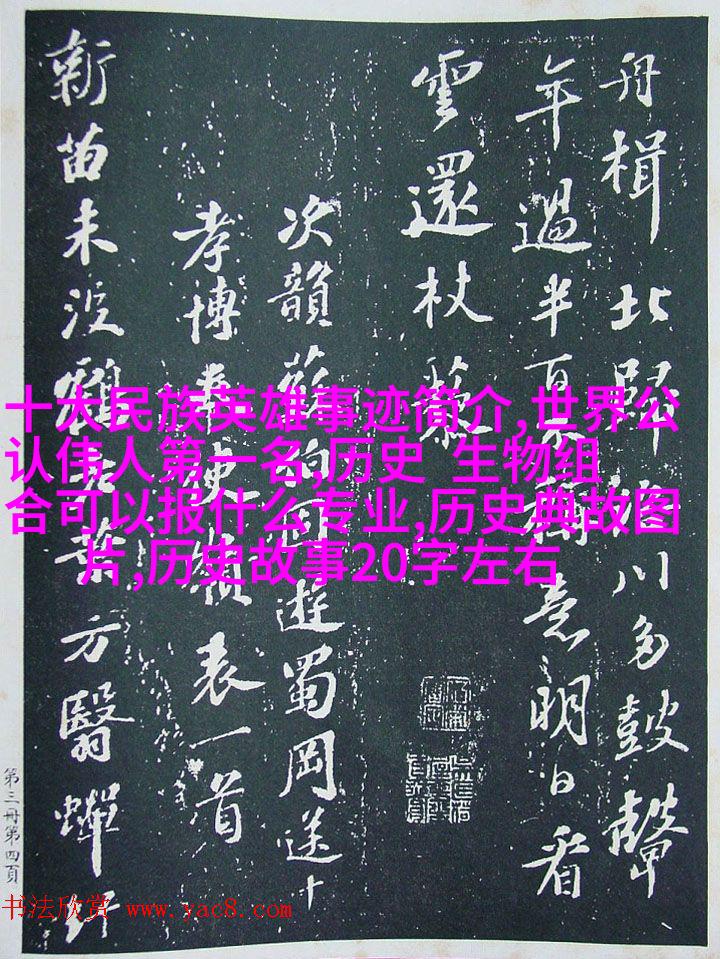 舟楫北歸淮川多鼓聲
年過半百不稱意明日看
雲還杖藜
次韻蘇伯固遊蜀岡送
孝博奉使嶺表一首
新苗未沒鶴老葉方翳蟬
十大民族英雄事迹简介,世界公
认伟人第一名,历史 生物组
合可以报什么专业,历史典故图
片,历史故事20字左右
第三册第四頁
书法欣赏 www.yac8.com